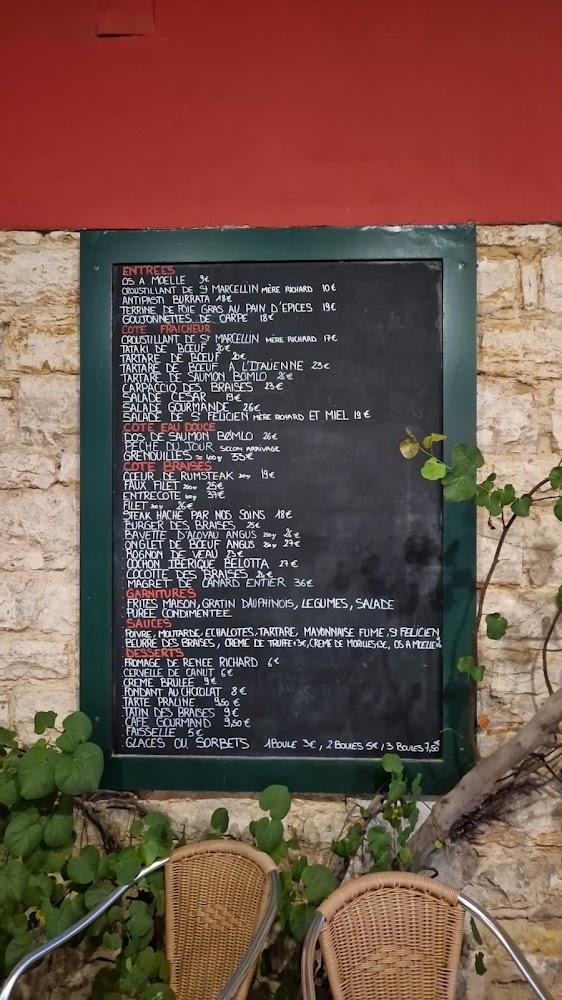 ENTREES
OS A MOELLE 9€
CROUSTILLANT DE St MARCELLIN MÈRE RICHARD 10€
ANTIPASTI BURRATA 18€
TERRINE DE FOIE GRAS AU PAIN D'EPICES 19€
GOUJONNETTES DE CARPE 18€
COTE FRAICHEUR
CROUSTILLANT DE St MARCELLIN MÈRE RICHARD 17€
TATAKI DE BŒUF 20€
TARTARE DE BŒUF 20€
TARTARE DE BŒUF A L'ITALIENNE 23€
TARTARE DE SAUMON BÖMLO 26€
CARPACCIO DES BRAISES 23€
SALADE CESAR 19€
SALADE GOURMANDE 26€
SALADE DE St FELICIEN MÈRE RICHARD ET MIEL 19€
COTE EAU DOUCE
DOS DE SAUMON BØMLO 26€
PECHE DU JOUR SELON ARRIVAGE
GRENOUILLES ≈ 400g 33€
COTE BRAISES
CŒUR DE RUMSTEAK 19€
FAUX FILET 25€
ENTRECOTE 37€
FILET 26€
STEAK HACHE PAR NOS SOINS 18€
BURGER DES BRAISES 25€
BAVETTE D'ALOYAU ANGUS 26€
ONGLET DE BŒUF ANGUS 27€
ROGNON DE VEAU 23€
COCHON IBERIQUE BELOTTA 27€
COCOTTE DES BRAISES
MAGRET DE CANARD ENTIER 36€
GARNITURES
FRITES MAISON, GRATIN DAUPHINOIS, LEGUMES, SALADE
PUREE CONDIMENTEE
SAUCES
POIVRE, MOUTARDE, ECHALOTES, TARTARE, MAYONNAISE FUME, St FELICIEN
BEURRE DES BRAISES, CREME DE TRUFFE+3€, CREME DE MORILLES+3€, OS A MOELLE
DESSERTS
FROMAGE DE RENEE RICHARD 6€
CERVELLE DE CANUT 6€
CREME BRULEE 9€
FONDANT AU CHOCOLAT 8€
TARTE PRALINE 9,50€
TATIN DES BRAISES 9€
CAFE GOURMAND 9,50€
FAISSELLE 5€
GLACES OU SORBETS 1 BOULE 3€, 2 BOULES 5€, 3 BOULES 7,50